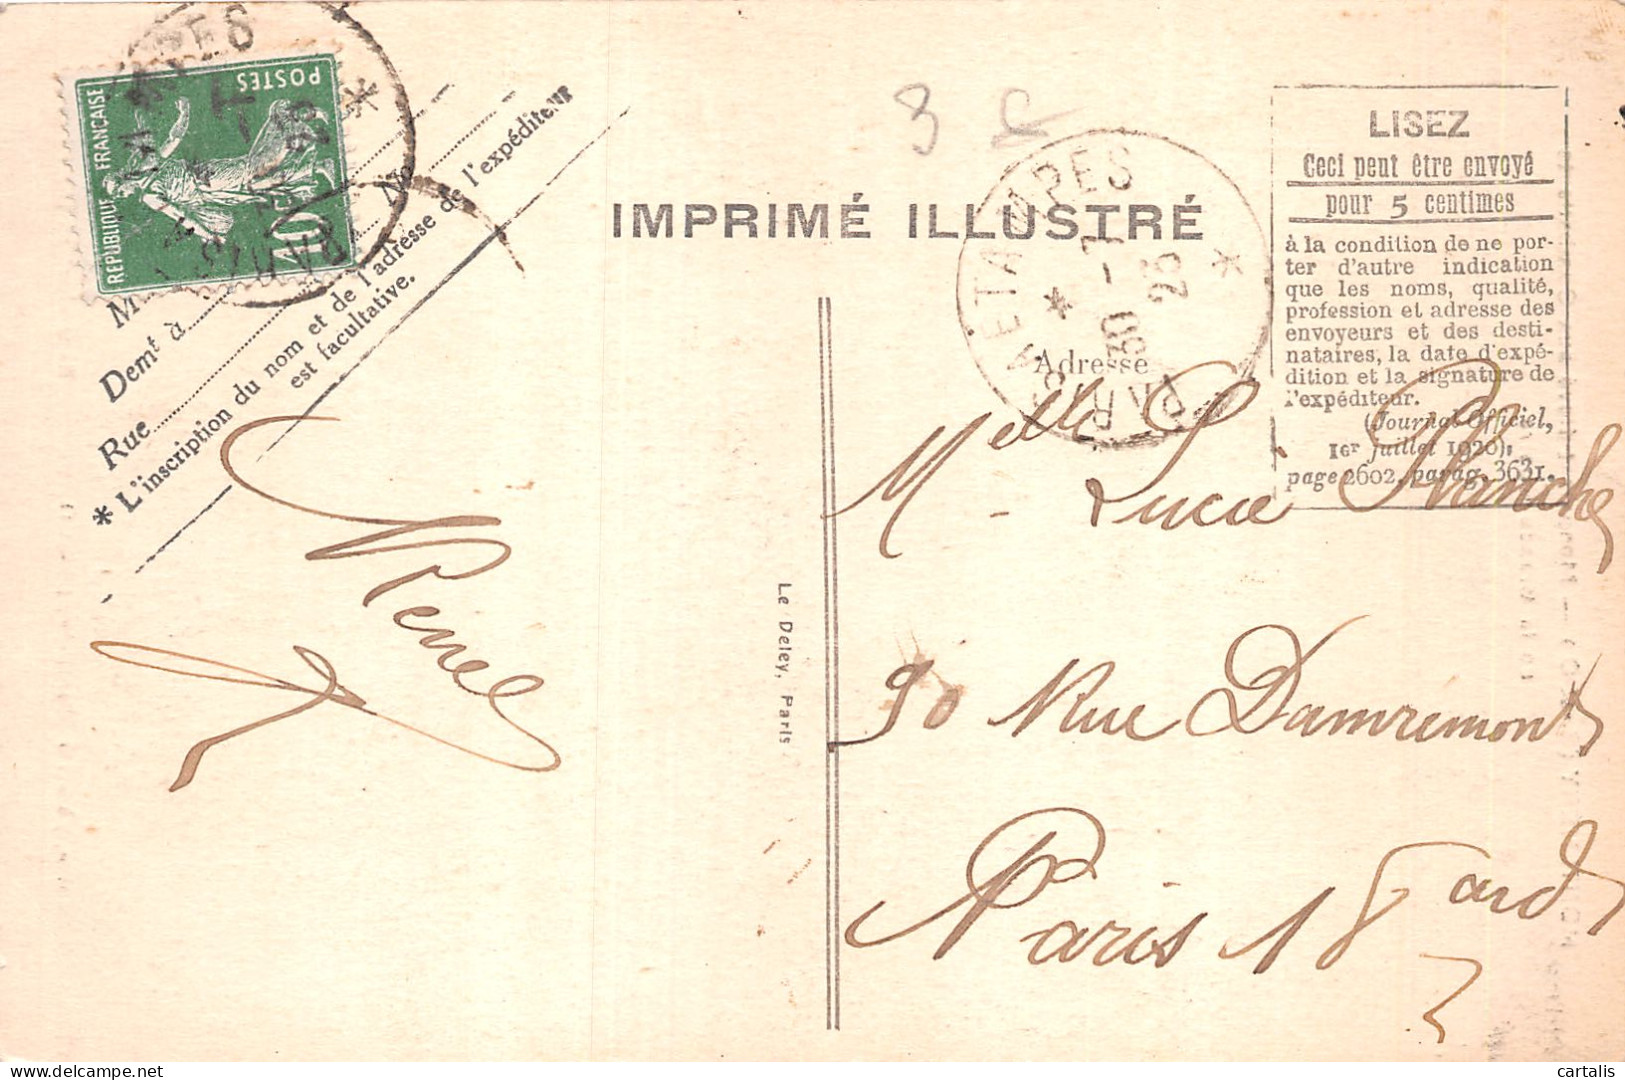 POSTES
REPUBLIQUE FRANÇAISE
10
3
IMPRIMÉ ILLUSTRÉ
PARIS A ETAMPES
1-7
23
LISEZ
Ceci peut être envoyé
pour 5 centimes
à la condition de ne por-
ter d'autre indication
que les noms, qualité,
profession et adresse des
envoyeurs et des desti-
nataires, la date d'expé-
dition et la signature de
l'expéditeur.
(Journal Officiel,
1er juillet 1920),
page 2602, parag. 3631.
M
Demt à
Rue No
* L'inscription du nom et de l'adresse de l'expéditeur
est facultative.
Le Deley, Paris
Adresse
Melle Lucie Planche
90 Rue Damrémont
Paris 18 ard